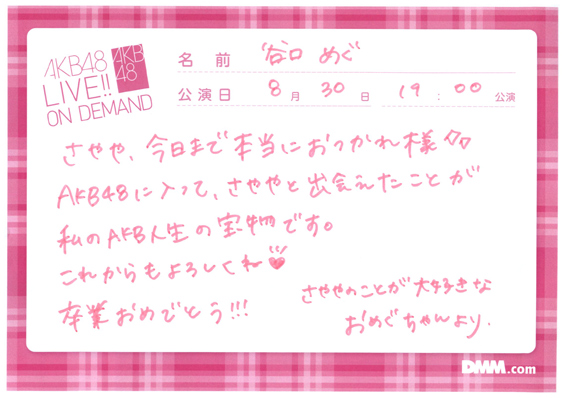 AKB48
LIVE!!
ON DEMAND
AKB
48
名前 谷口 めぐ
公演日 8月30日 19:00公演
さやや、今日まで本当におつかれ様
AKB48に入って、さややと出会えたことが
私のAKB人生の宝物です。
これからもよろしくね
卒業おめでとう!!!
さややのことが大好きな
おめぐちゃんより.
DMM.com